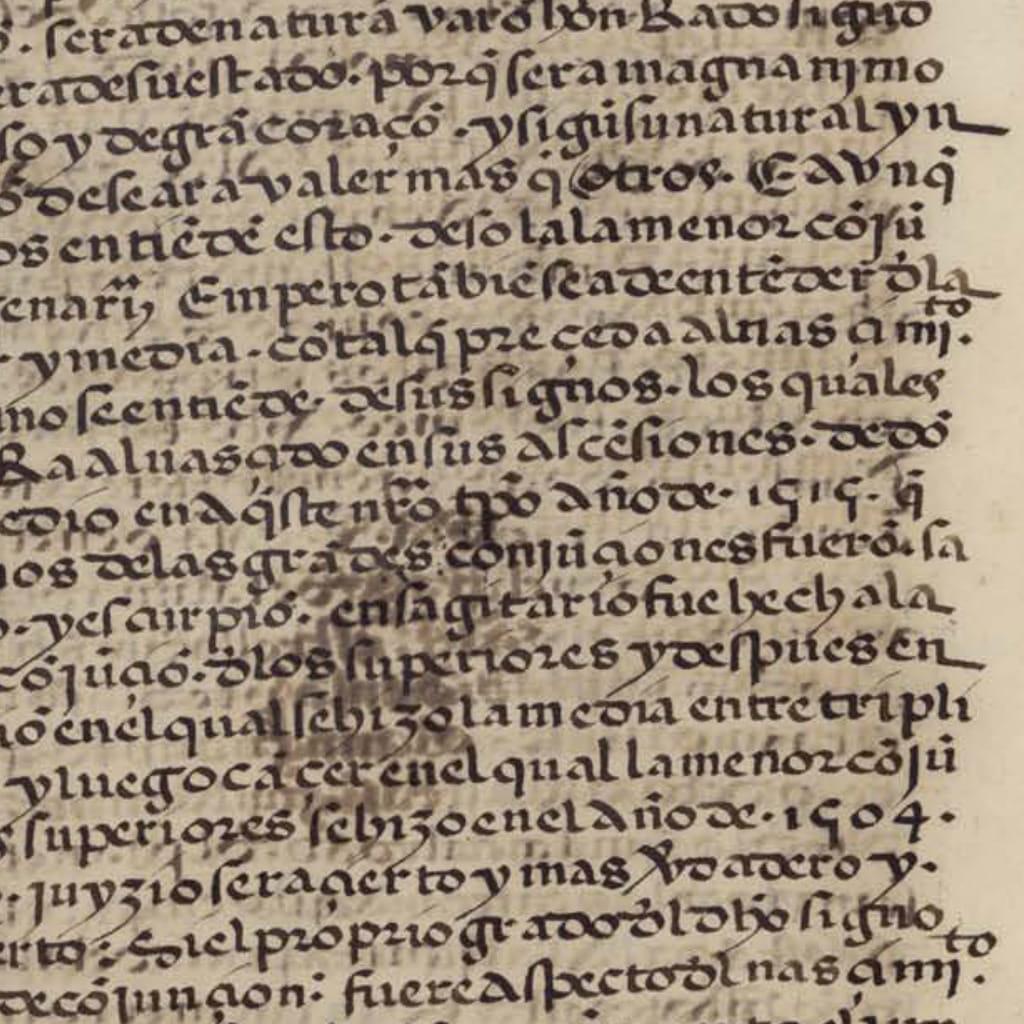 . sera de natura varō hōn Rado signo
era de su estado. porq̄ sera magnanimo
so y de grā coraçō. y sigū su natural yn
desear a valer mas q̄ otros. E avnq̄
os entiēdē esto. de sola la menor cōjū
enarῑȝ Empero tābiē se a de entēder d̄la
y media. cō tal q̄ preçeda al nas çimjᵗᵒ.
mo se entiēde. de sus signos. los quales
Ra al nas çido en sus asçēsiones. de dō
edio en aq̄ste nr̄o tpō año de. 1515. q̄
nos de las grādes conjūçiones fuerō. sa
. y escirpio. en sagitario fue hecha la
cōjūçiō. d̄los superiores y despues en
io en el qual se hizo la media entre tripli
y luego cāçer en el qual la menor cōjū
superiores se hizo en el año de. 1504.
. juyzio sera çierto y mas v̄dadero y.
erto: Si el proprio grado d̄l d̄ho signo
de cōjunçion: fuere aspecto d̄l nasçimjᵗᵒ.